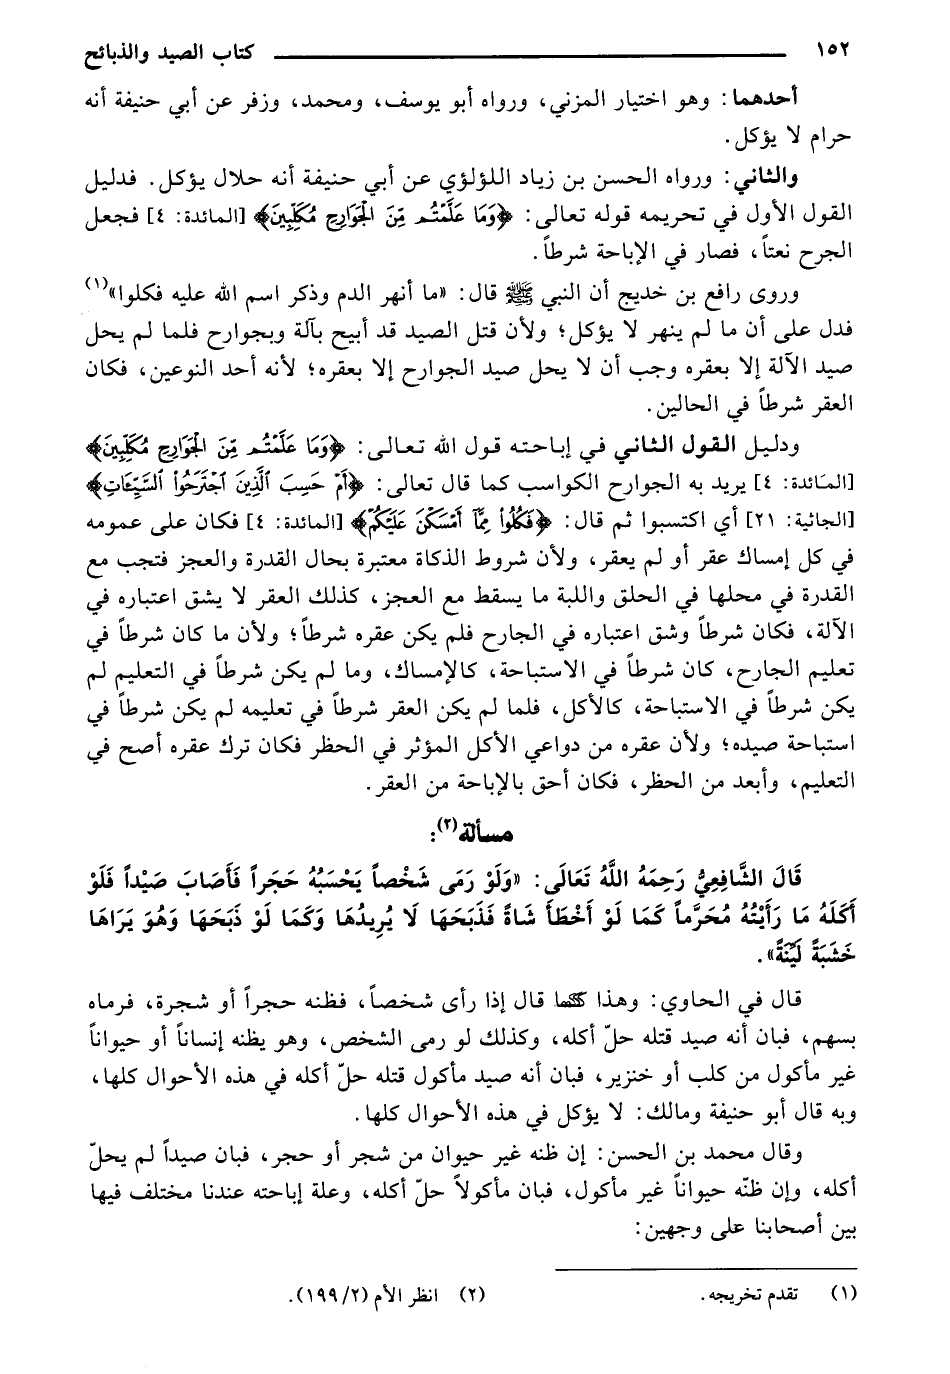 ١٥٢ كتاب الصيد والذبائح
أحدهما: وهو اختيار المزني، ورواه أبو يوسف، ومحمد، وزفر عن أبي حنيفة أنه
حرام لا يؤكل.
والثاني: ورواه الحسن بن زياد اللؤلؤي عن أبي حنيفة أنه حلال يؤكل. فدليل
القول الأول في تحريمه قوله تعالى: ﴿وَمَا عَلَّمْتُم مِّنَ الْجَوَارِحِ مُكَلِّبِينَ﴾ [المائدة: ٤] فجعل
الجرح نعتاً، فصار في الإباحة شرطاً.
وروى رافع بن خديج أن النبي ﷺ قال: «ما أنهر الدم وذكر اسم الله عليه فكلوا»(١)
فدل على أن ما لم ينهر لا يؤكل؛ ولأن قتل الصيد قد أبيح بآلة وبجوارح فلما لم يحل
صيد الآلة إلا بعقره وجب أن لا يحل صيد الجوارح إلا بعقره؛ لأنه أحد النوعين، فكان
العقر شرطاً في الحالين.
ودليل القول الثاني في إباحته قول الله تعالى: ﴿وَمَا عَلَّمْتُم مِّنَ الْجَوَارِحِ مُكَلِّبِينَ﴾
[المائدة: ٤] يريد به الجوارح الكواسب كما قال تعالى: ﴿أَمْ حَسِبَ ٱلَّذِينَ ٱجْتَرَحُوا۟ ٱلسَّيِّـَٔاتِ﴾
[الجاثية: ٢١] أي اكتسبوا ثم قال: ﴿فَكُلُوا۟ مِمَّآ أَمْسَكْنَ عَلَيْكُمْ﴾ [المائدة: ٤] فكان على عمومه
في كل إمساك عقر أو لم يعقر، ولأن شروط الذكاة معتبرة بحال القدرة والعجز فتجب مع
القدرة في محلها في الحلق واللبة ما يسقط مع العجز، كذلك العقر لا يشق اعتباره في
الآلة، فكان شرطاً وشق اعتباره في الجارح فلم يكن عقره شرطاً؛ ولأن ما كان شرطاً في
تعليم الجارح، كان شرطاً في الاستباحة، كالإمساك، وما لم يكن شرطاً في التعليم لم
يكن شرطاً في الاستباحة، كالأكل، فلما لم يكن العقر شرطاً في تعليمه لم يكن شرطاً في
استباحة صيده؛ ولأن عقره من دواعي الأكل المؤثر في الحظر فكان ترك عقره أصح في
التعليم، وأبعد من الحظر، فكان أحق بالإباحة من العقر.
مسألة(٢):
قَالَ الشَّافِعِيُّ رَحِمَهُ اللَّهُ تَعَالَى: «وَلَوْ رَمَى شَخْصاً يَحْسَبُهُ حَجَراً فَأَصَابَ صَيْداً فَلَوْ
أَكَلَهُ مَا رَأَيْتُهُ مُحَرَّماً كَمَا لَوْ أَخْطَأَ شَاةً فَذَبَحَهَا لَا يُرِيدُهَا وَكَمَا لَوْ ذَبَحَهَا وَهُوَ يَرَاهَا
خَشَبَةً لَيِّنَةً».
قال في الحاوي: وهذا كما قال إذا رأى شخصاً، فظنه حجراً أو شجرة، فرماه
بسهم، فبان أنه صيد قتله حلّ أكله، وكذلك لو رمى الشخص، وهو يظنه إنساناً أو حيواناً
غير مأكول من كلب أو خنزير، فبان أنه صيد مأكول قتله حلّ أكله في هذه الأحوال كلها،
وبه قال أبو حنيفة ومالك: لا يؤكل في هذه الأحوال كلها.
وقال محمد بن الحسن: إن ظنه غير حيوان من شجر أو حجر، فبان صيداً لم يحلّ
أكله، وإن ظنّه حيواناً غير مأكول، فبان مأكولاً حلّ أكله، وعلة إباحته عندنا مختلف فيها
بين أصحابنا على وجهين:
(١) تقدم تخريجه. (٢) انظر الأم (١٩٩/٢).